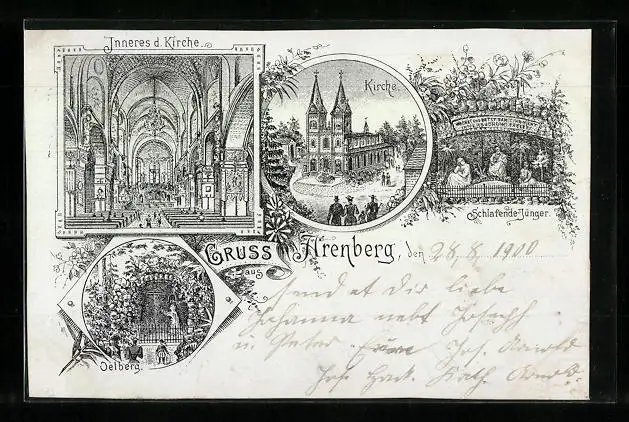 Inneres d. Kirche.
Kirche.
Schlafende Jünger.
Gruss aus Arenberg, den 28,8, 1900
Oelberg.
sendet Dir liebe
Johanna nebst Joseph
u. Peter Jos.
Jos. Kath.